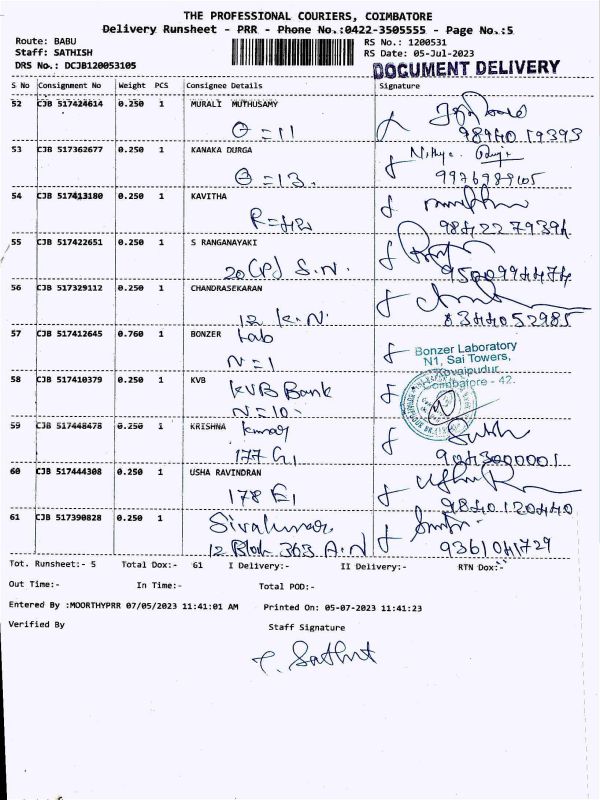 THE PROFESSIONAL COURIERS, COIMBATORE
Delivery Runsheet - PRR - Phone No.:0422-3505555 - Page No.:5
Route: BABU
RS No.: 1200531
Staff: SATHISH
RS Date: 05-Jul-2023
DRS No.: DCJB120053105
DOCUMENT DELIVERY
S No Consignment No Weight PCS Consignee Details Signature
52 CJB 517424614 0.250 1 MURALI MUTHUSAMY
O = 11
98940 19393
53 CJB 517362677 0.250 1 KANAKA DURGA
Nithya
O = 13.
54 CJB 517413180 0.250 1 KAVITHA
R = 42
9842279394
55 CJB 517422651 0.250 1 S RANGANAYAKI
20 (P) S.N.
9500994474
56 CJB 517329112 0.250 1 CHANDRASEKARAN
12 K.N.
8344052985
57 CJB 517412645 0.760 1 BONZER Lab
N = 1
Bonzer Laboratory
N1, Sai Towers,
Kovaipudur
Coimbatore - 42.
58 CJB 517410379 0.250 1 KVB
KVB Bank
N = 10.
59 CJB 517448478 0.250 1 KRISHNA Kumar
177 G1
9043000001
60 CJB 517444308 0.250 1 USHA RAVINDRAN
178 E1
9840120440
61 CJB 517390828 0.250 1 Sivakumar
12 Block 363 A.N
9361041729
Tot. Runsheet:- 5 Total Dox:- 61 I Delivery:- II Delivery:- RTN Dox:-
Out Time:- In Time:- Total POD:-
Entered By :MOORTHYPRR 07/05/2023 11:41:01 AM Printed On: 05-07-2023 11:41:23
Verified By Staff Signature